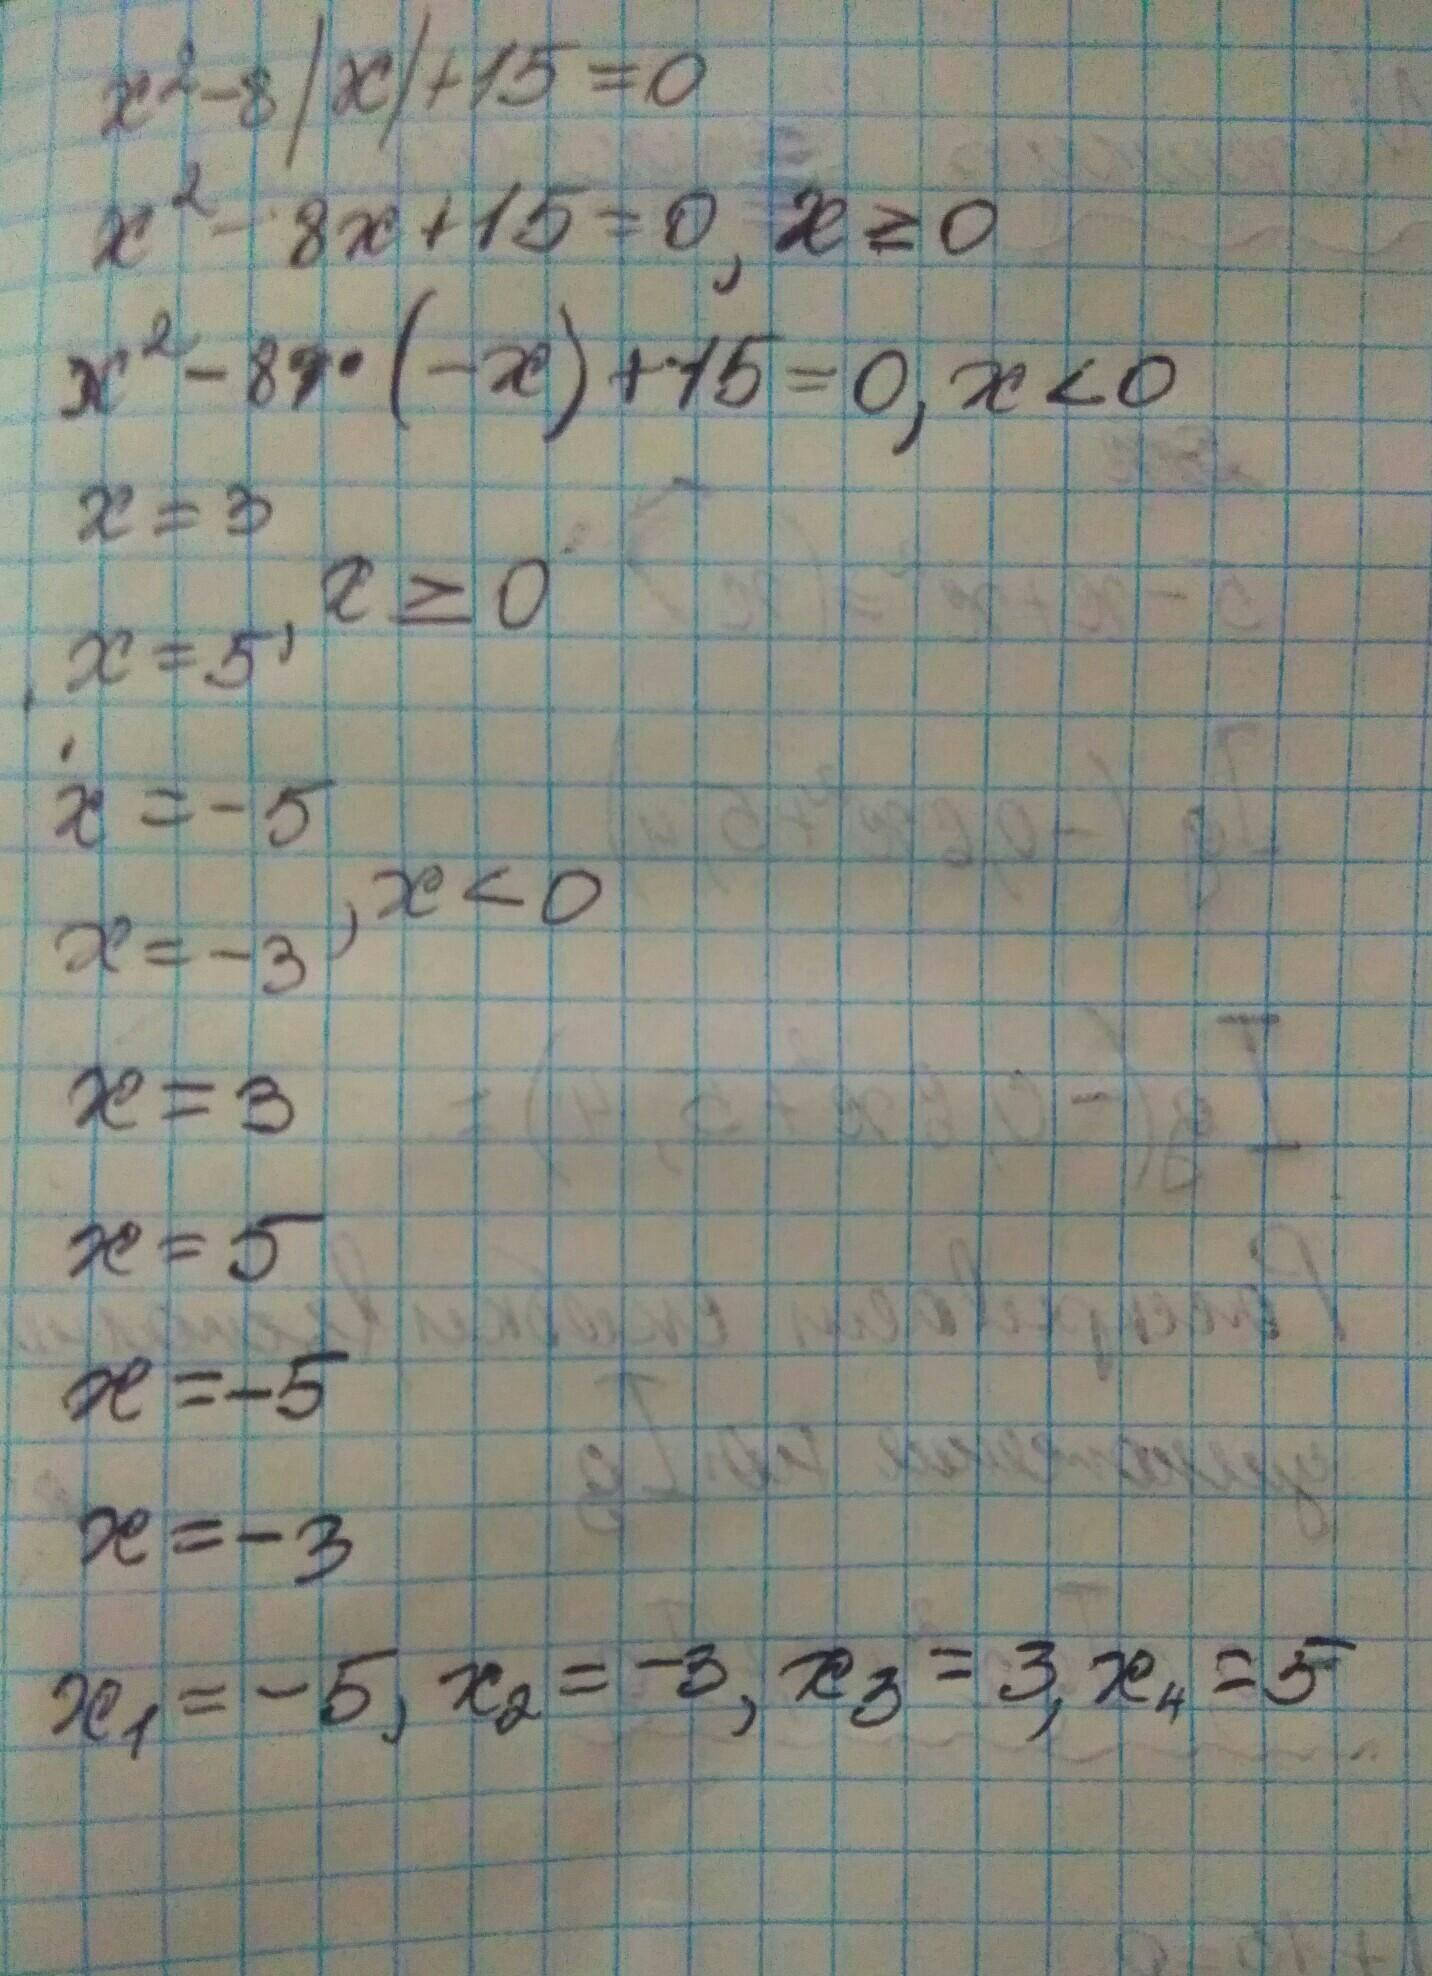 x²-8|x|+15=0
x²-8x+15=0, x≥0
x²-8·(-x)+15=0, x<0
x=3
, x≥0
x=5
x=-5
, x<0
x=-3
x=3
x=5
x=-5
x=-3
x₁=-5, x₂=-3, x₃=3, x₄=5